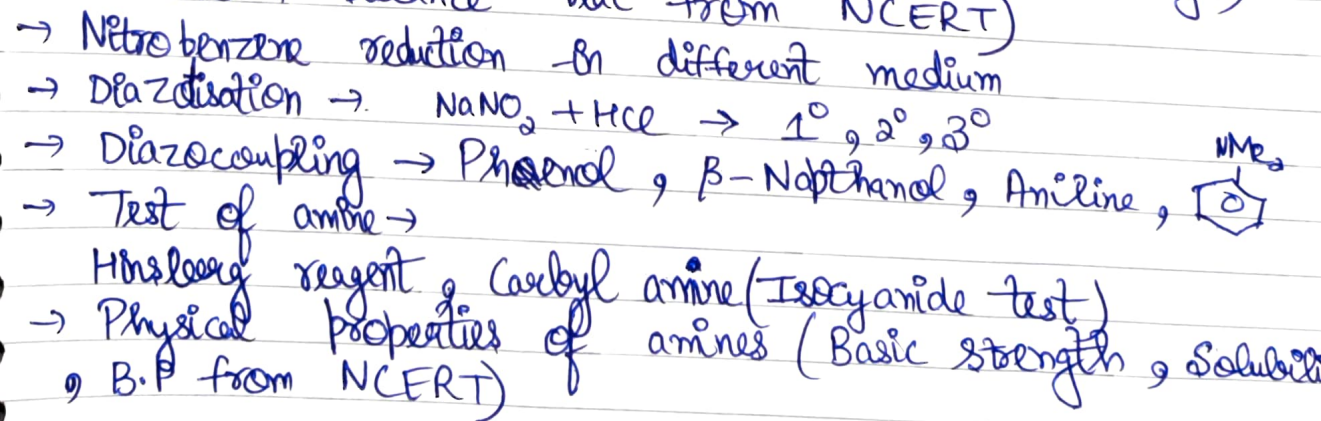 from NCERT)
→ Nitrobenzene reduction in different medium
→ Diazotisation → NaNO₂ + HCl → 1°, 2°, 3°
→ Diazocoupling → Phenol, β-Napthanol, Aniline, NMe₂
→ Test of amine →
Hinsberg reagent, Carbyl amine (Isocyanide test)
→ Physical properties of amines (Basic strength, Solubili
, B.P from NCERT)